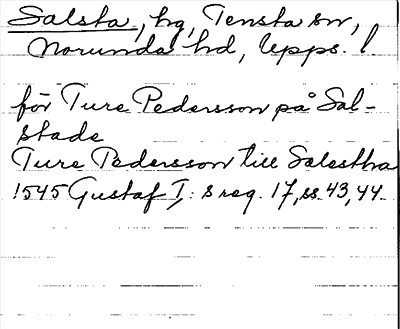 Salsta, hg, Tensta sn,
Norunda hd, Upps. l.
för Ture Pedersson på Sal-
stade
Ture Pedersson till Salestha
1545 Gustaf I: s reg. 17, ss. 43, 44.